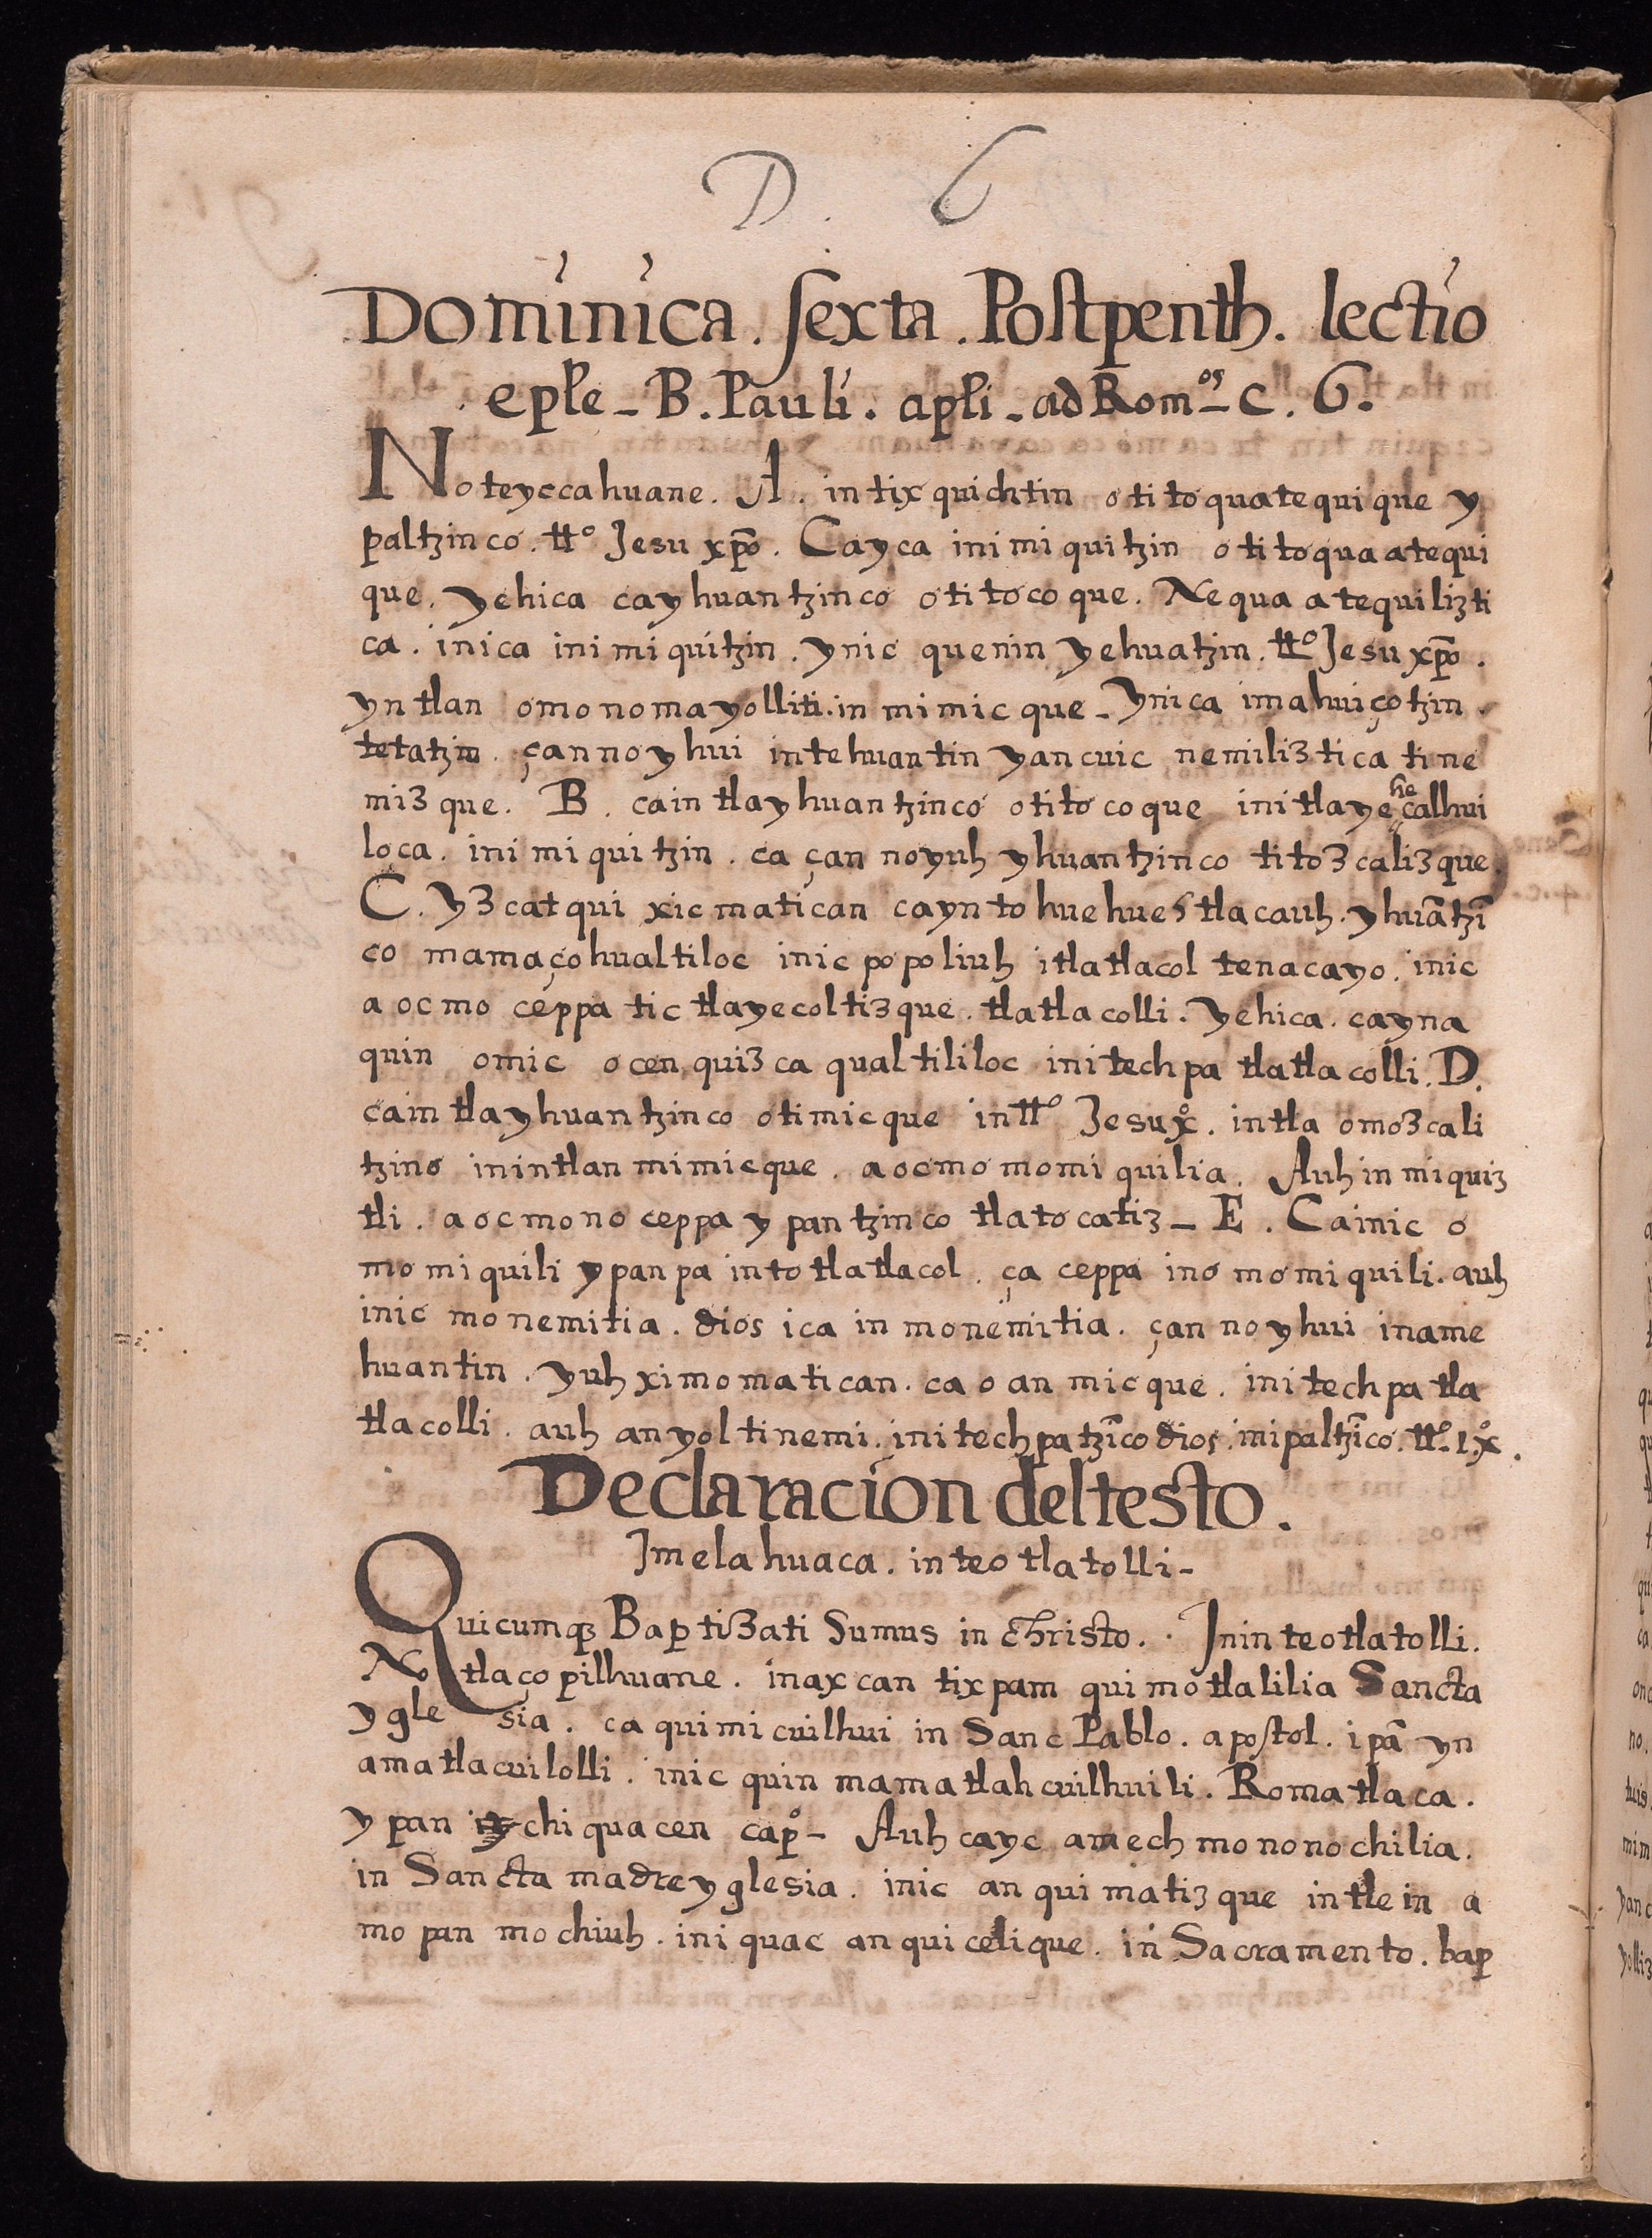 D. 6
Dominica. sexta. Postpenth. lectio
eple - B. Pauli. apli - ad Rom^os - c. 6.
Noteyccahuane. A. in tix quichtin o ti to quate qui que y
paltzin co. tto Jesu xpo. Cayca ini mi qui tzin o ti to qua atequi
que. yehica cay huan tzinco o ti to co que. Ne qua a tequiliz ti
ca. inica ini mi quitzin. ynic quenin yehuatzin. tto Jesu xpo.
yn tlan omo no ma yolliti. in mi mic que - ynica imahuiço tzin.
tetatzin. çan no y hui in tehuan tin yan cuic nemiliz ti ca ti ne
miz que. B. ca in tla y huan tzinco o ti to co que ini tlaye he calhui
loca. ini mi qui tzin. ca çan noyuh y huan tzin co ti toz calizque
C. yz cat qui xic matican cayn to hue hue tlacauh. y huātzī
co mamaço hualtiloc inic po poliuh itlatlacol tenacayo. inic
a oc mo ceppa tic tlayecoltiz que. tlatla colli. yehica. cayna
quin omic o cen quiz ca qual tililoc ini tech pa tlatla colli. D.
ca in tla y huan tzin co o ti mic que in tto Jesu xo. in tla omoz cali
tzino inin tlan mi mic que. a oc mo momi quilia. Auh in miquiz
tli. a oc mo no ceppa y pan tzin co tlatocatiz - E. Ca inic o
mo mi quili y pan pa in to tlatlacol. ça ceppa ino mo mi quili. auh
inic mo nemitia. dios ica in monemitia. çan no y hui iname
huantin. yuh ximomatican. ca o an mic que. ini tech pa tla
tla colli. auh an yol ti nemi. ini tech pa tzīco dios. ini paltzīco. tto. I. xo.
Declaracion del testo.
Jmelahuaca. in teo tlatolli -
Quicumqz Baptizati Sumus in christo. . Jnin teotlatolli.
No tlaço pilhuane. in ax can tix pam qui mo tlalilia Sancta
y gle sia. ca qui mi cuilhui in Sanc Pablo. apostol. i pā yn
amatlacuilolli. inic quin mamatlah cuilhuili. Roma tlaca.
y pan chi qua cen capo - Auh cayc amech mo no no chilia.
in Sancta madre yglesia. inic an qui matiz que in tle in a
mo pan mo chiuh. ini quac an qui celi que. in Sacramento. bap